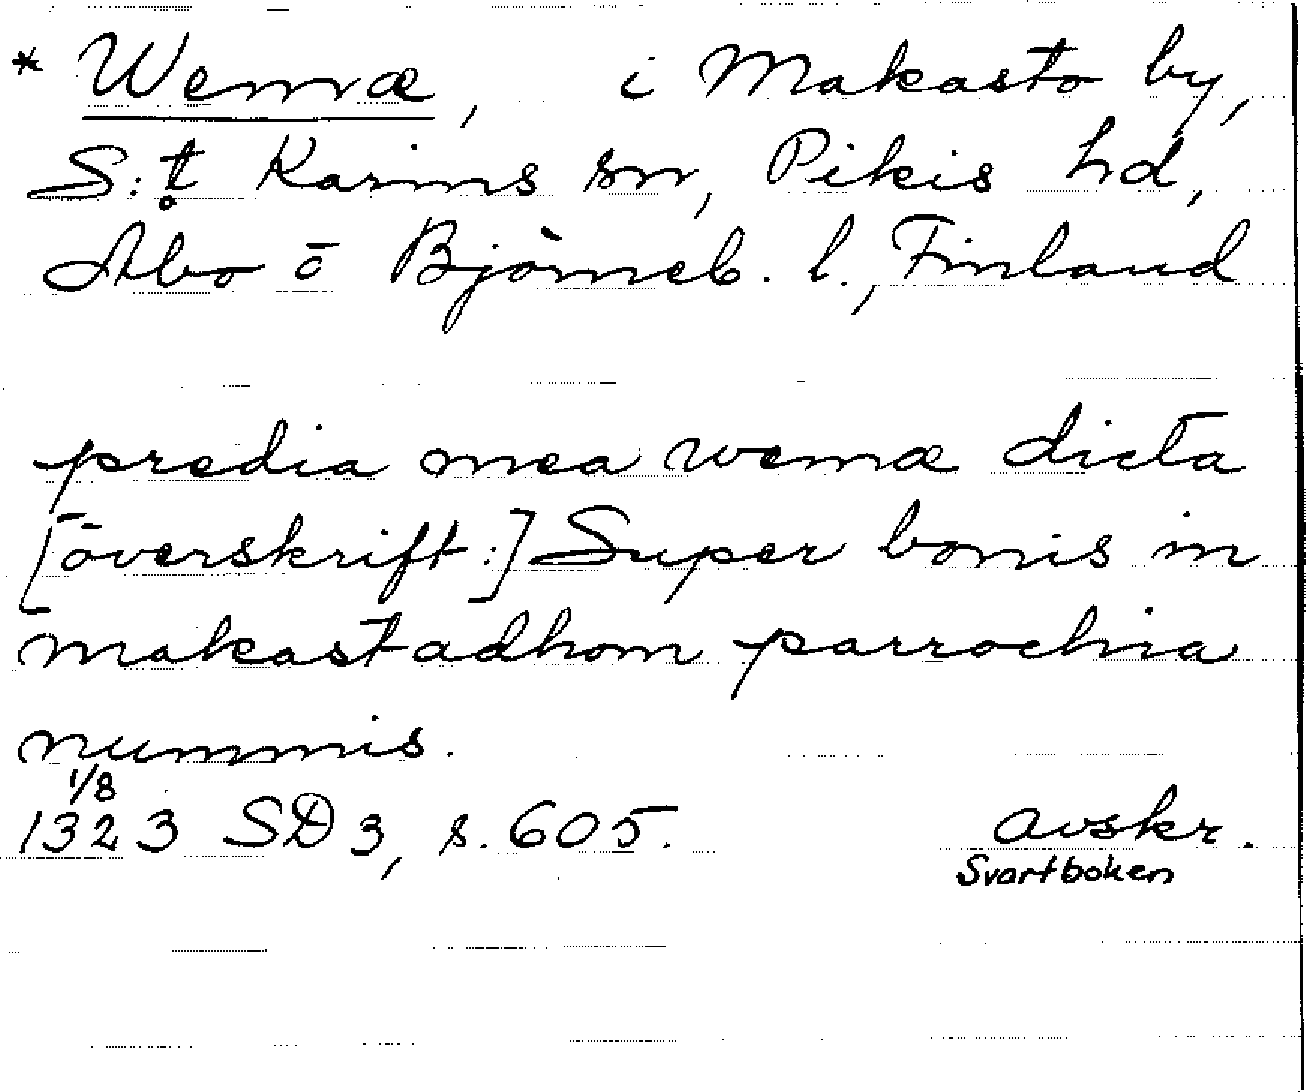 * Wemæ, i Makasto by,
S:t Karins sn, Pikis hd,
Åbo o Björneb. l., Finland
predia mea wemæ dicta
[överskrift:] Super bonis in
makastadhom parrochia
nummis.
1/8
1323 SD 3, s. 605. avskr.
Svartboken